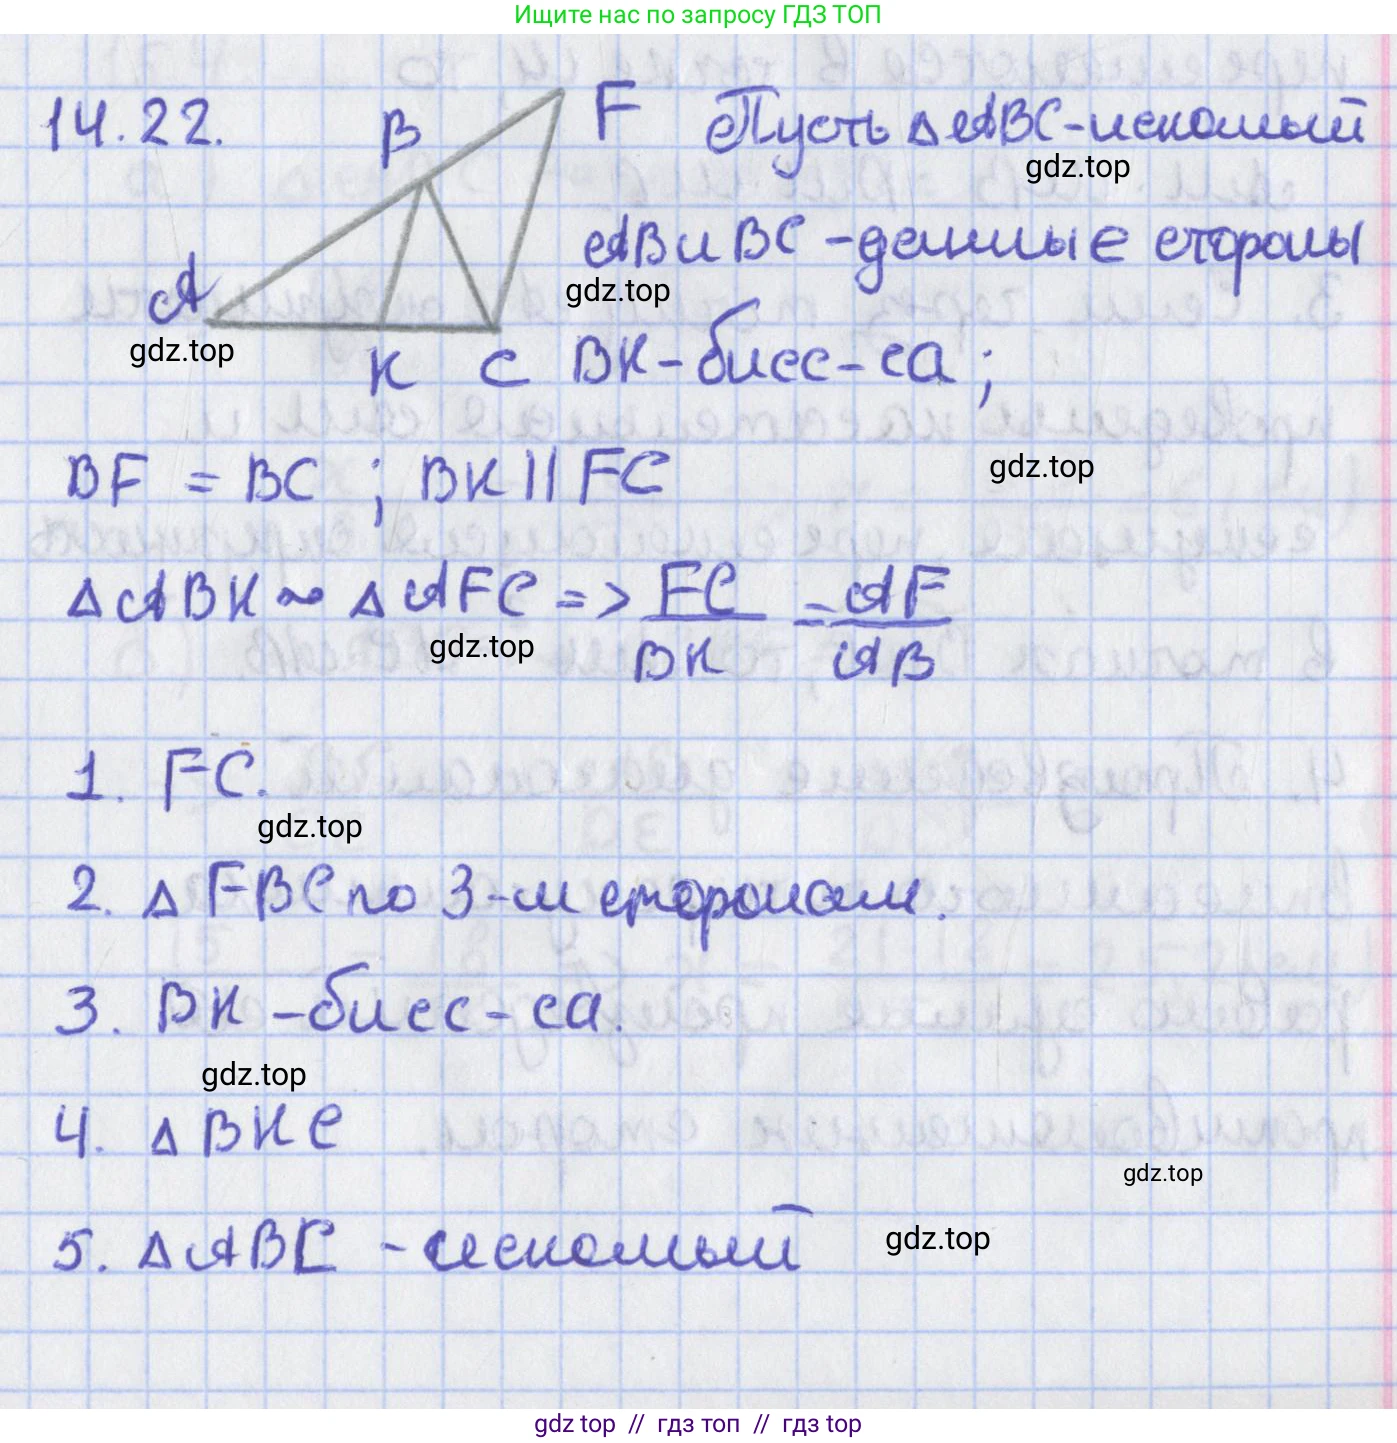 Ищите нас по запросу ГДЗ ТОП
14.22.
B
F
Пусть △ABC-искомый
gdz.top
AB и BC - данные стороны
gdz.top
A
gdz.top
K
C
BK - бисс-са;
BF = BC ; BK || FC
gdz.top
△ABK ~ △AFC => FC/BK = AF/AB
gdz.top
1. FC.
gdz.top
2. △FBC по 3-м сторонам.
3. BK - бисс-са.
gdz.top
4. △BKC
gdz.top
5. △ABC - искомый
gdz.top
gdz top // гдз топ // гдз top